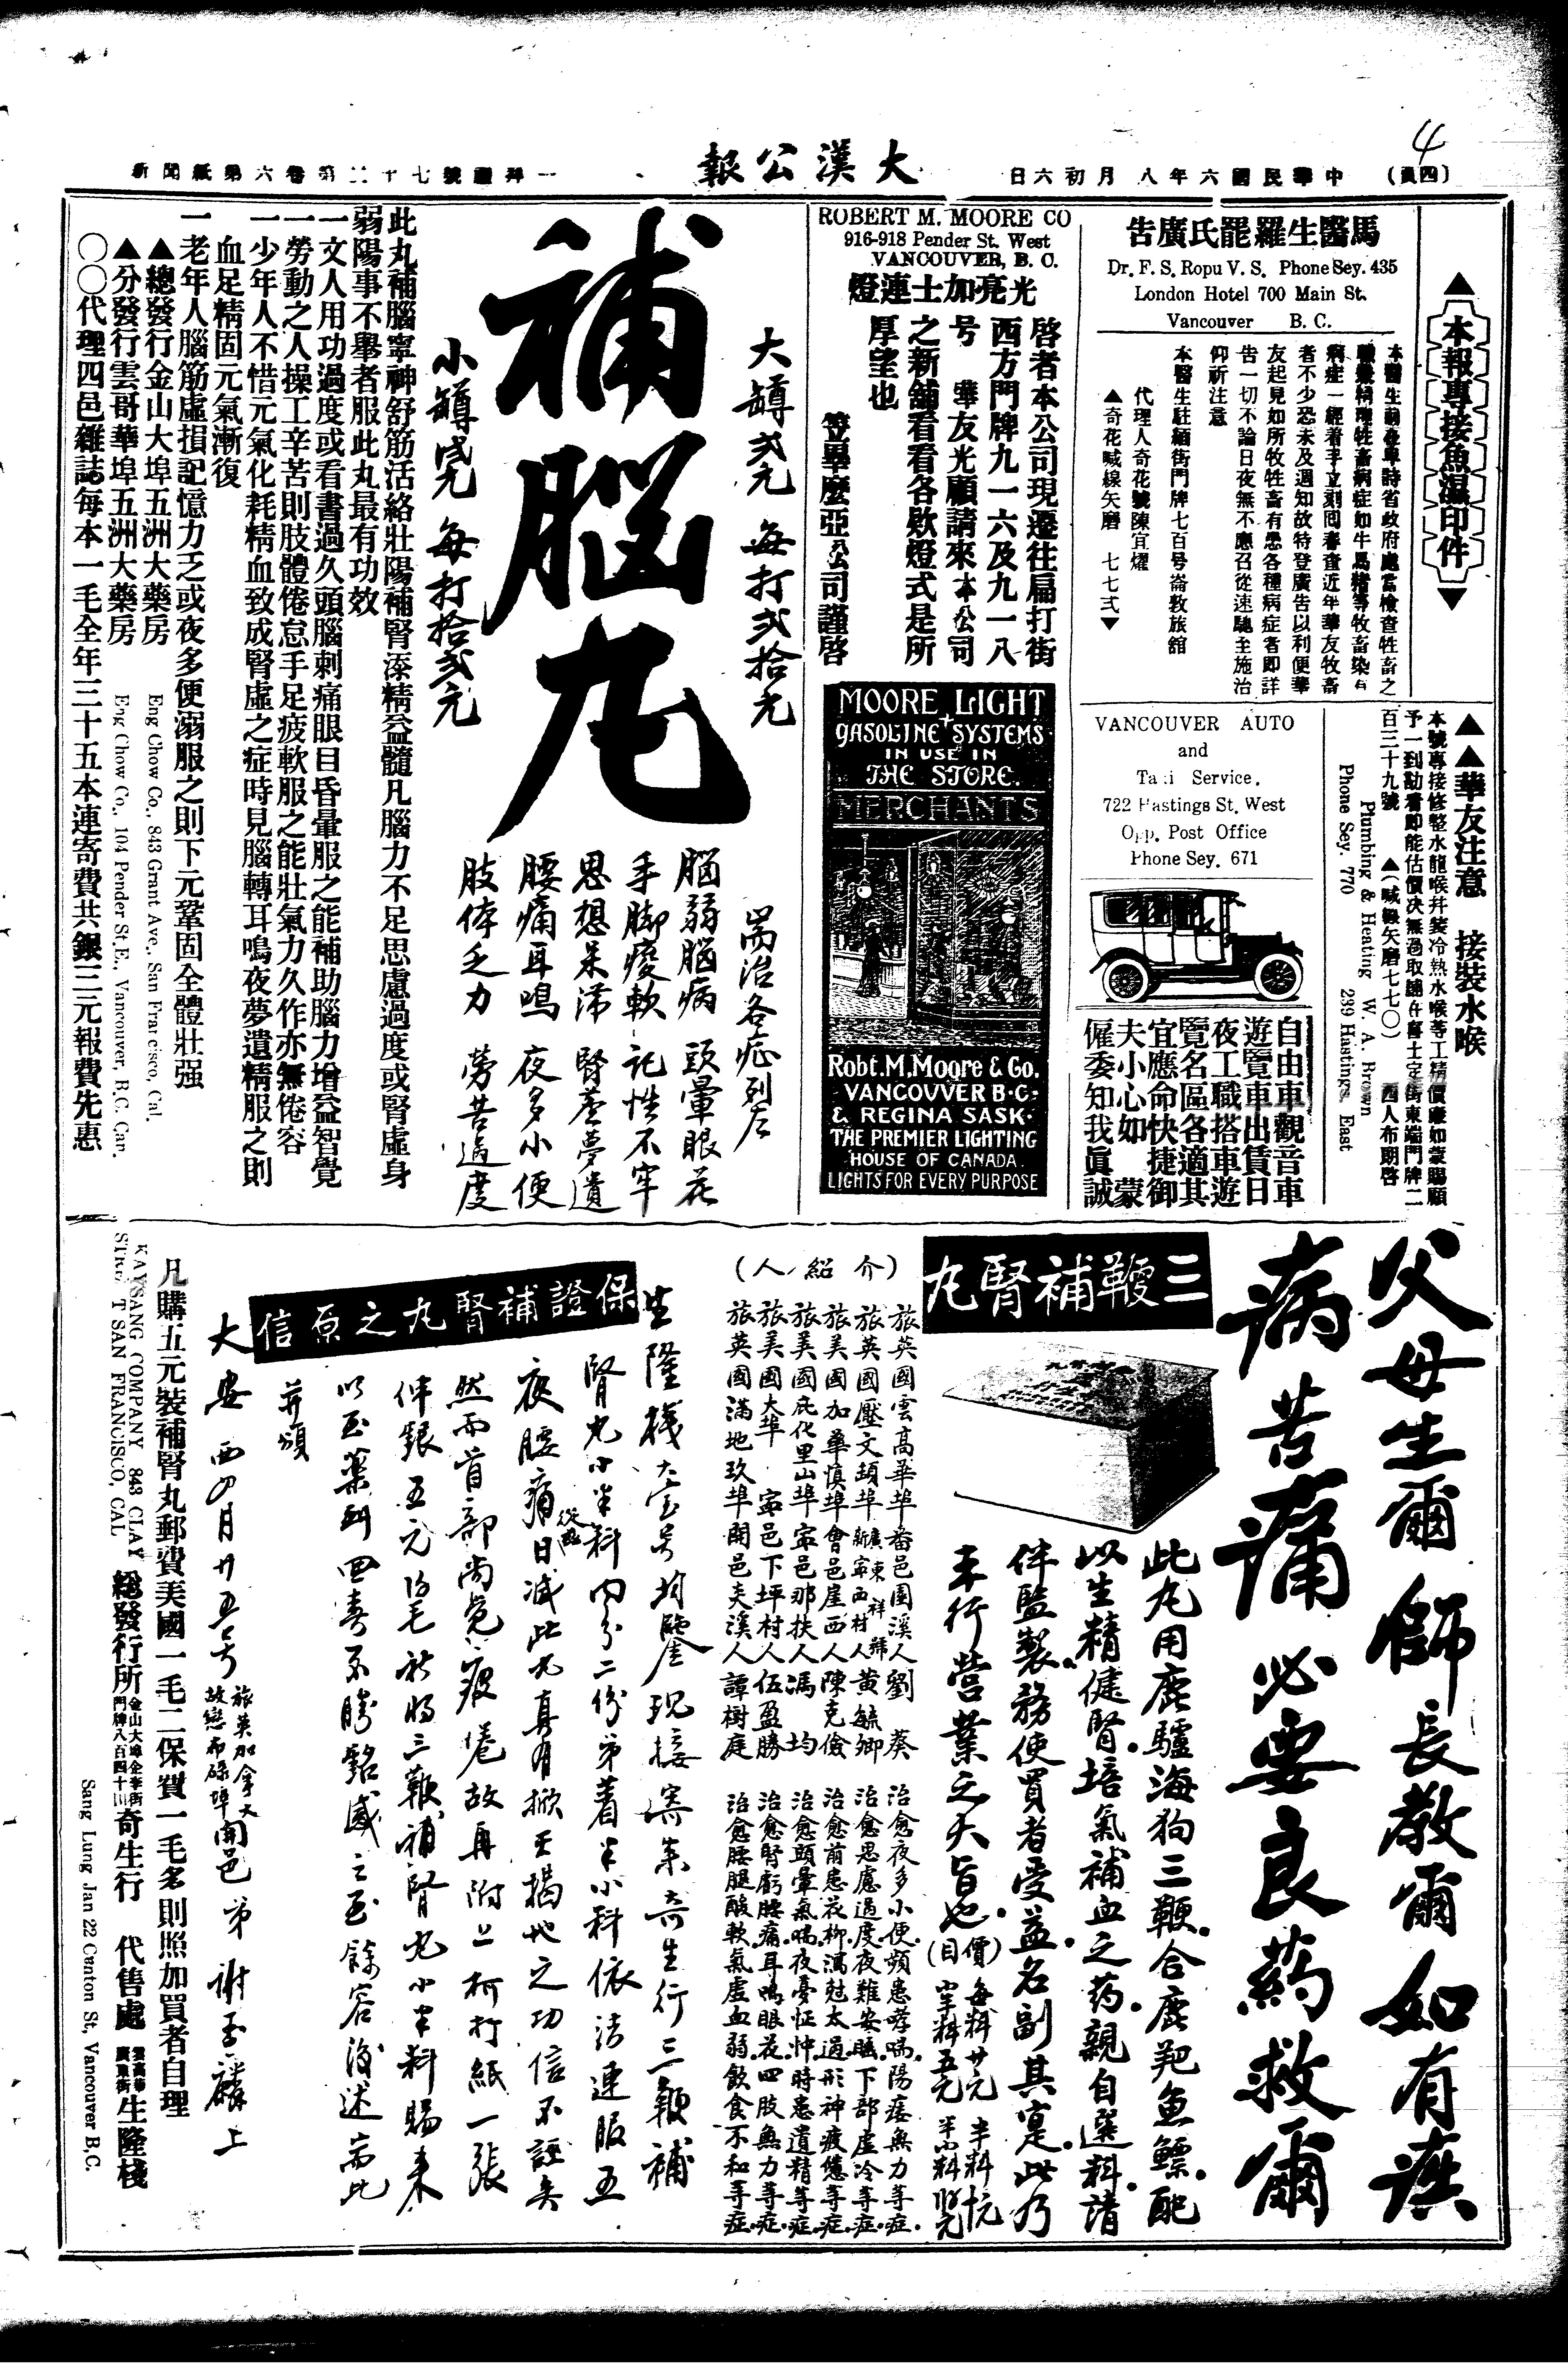 4
(四頁)
中華民國六年八月初六日
大漢公報
新聞紙第六卷第二十七號
▲本報專接魚濕印件▼
馬醫生羅罷氏廣告
Dr. F. S. Ropu V. S. Phone Sey. 435
London Hotel 700 Main St.
Vancouver B. C.
病症一經着手立刻回春查近年華友牧畜
者不少恐未及週知故特登廣告以利便華
友起見如所牧牲畜有患各種病症者即詳
告一切不論日夜無不應召從速馳至施治
仰祈注意
本醫生駐緬街門牌七百号崙敦旅館
代理人奇花號陳宜燿
▲奇花喊線矢磨 七七弍▼
▲▲華友注意 接裝水喉
本號專接修整水龍喉幷裝冷熱水喉等工精價廉如蒙賜顧
百三十九號 ▲(喊線矢磨七七〇) 西人布朗啓
Plumbing & Heating W. A. Brown
Phone Sey. 770 239 Haistings East
VANCOUVER AUTO
and
Taxi Service.
722 Hastings St. West
Opp. Post Office
Phone Sey. 671
自由車觀音車
遊覽車出賃日
夜工職搭車遊
覽名區各適其
宜應命快捷御
夫小心如 蒙
僱委知我眞誠
ROBERT M. MOORE CO
916-918 Pender St. West
VANCOUVER, B. C.
光亮加士連燈
啓者本公司現遷往扁打街
西方門牌九一六及九一八
号 華友光顧請來本公司
之新舖看看各欵燈式是所
厚望也
笠畢麼亞公司謹啓
MOORE LIGHT
GASOLINE SYSTEMS
IN USE IN
THE STORE.
MERCHANTS
Robt. M. Moore & Co.
VANCOUVER B.C.
& REGINA SASK.
THE PREMIER LIGHTING
HOUSE OF CANADA.
LIGHTS FOR EVERY PURPOSE
大罇弍元 每打弍拾元
補腦丸
小罇 每打拾弍元
耑治各症列左
腦弱腦病 頭暈眼花
手脚痠軟 記性不牢
思想呆滯 腎虧夢遺
腰痛耳鳴 夜多小便
肢体乏力 勞苦過度
此丸補腦寧神舒筋活絡壯陽補腎添精益髓凡腦力不足思慮過度或腎虛身
弱陽事不舉者服此丸最有功效
一文人用功過度或看書過久頭腦刺痛眼目昏暈服之能補助腦力增益智覺
一勞動之人操工辛苦則肢體倦怠手足疲軟服之能壯氣力久作亦無倦容
一少年人不惜元氣化耗精血致成腎虛之症時見腦轉耳鳴夜夢遺精服之則
血足精固元氣漸復
一老年人腦筋虛損記憶力乏或夜多便溺服之則下元鞏固全體壯强
▲總發行金山大埠五洲大藥房
Eng Chow Co., 843 Grant Ave., San Francisco, Cal.
▲分發行雲哥華埠五洲大藥房
Eng Chow Co., 104 Pender St. E., Vancouver, B.C. Can.
〇〇代理四邑雜誌每本一毛全年三十五本連寄費共銀三元報費先惠
父母生爾師長教爾如有疾
病苦痛必要良药救爾
三鞭補腎丸
此丸用鹿驢海狗三鞭合鹿羓魚鰾配
以生精健腎培氣補血之药親自選料請
伴監製務使買者受益名副其寔此乃
本行營業之大旨也
(價目) 每料廿元
(介紹人)
旅英國雲高華埠番邑園溪人劉葵 治愈夜多小便頻患哮喘陽痿無力等症
旅英國壓文頓埠 黃毓卿 治愈思慮過度夜難安睡下部虛冷等症
旅美國加華慎埠會邑崖西人陳克儉
旅美國庇化里山埠寧邑那扶人馮均 治愈頭暈氣喘夜憂怔忡時患遺精等症
旅美國大埠 寧邑下坪村人伍盈勝 治愈腎虧腰痛耳鳴眼花四肢無力等症
旅英國滿地玖埠開邑夫溪人譚樹庭 治愈腰腿酸軟氣虛血弱飲食不和等症
保證補腎丸之原信
生隆棧大宝号均鑒現接寄來奇生行三鞭補
腎丸小半料內分二份弟着半小料依法連服五
夜腰痛日減此丸真有掀天揭地之功信不誣矣
然而首部尚覺疲倦故再附上柯打紙一張
伸銀五元 祈將三鞭補腎丸小半料賜來
以玉 不勝銘感之至餘容後述耑此
并頌
大安 西四月廿五号 旅英加拿大 開邑弟謝 上
凡購五元裝補腎丸郵費美國一毛二保費一毛多則照加買者自理
KAYSANG COMPANY 843 CLAY
STREET SAN FRANCISCO, CAL
總發行所 奇生行 代售處 生隆棧
Sang Lung Jan 22 Canton St, Vancouver B.C.